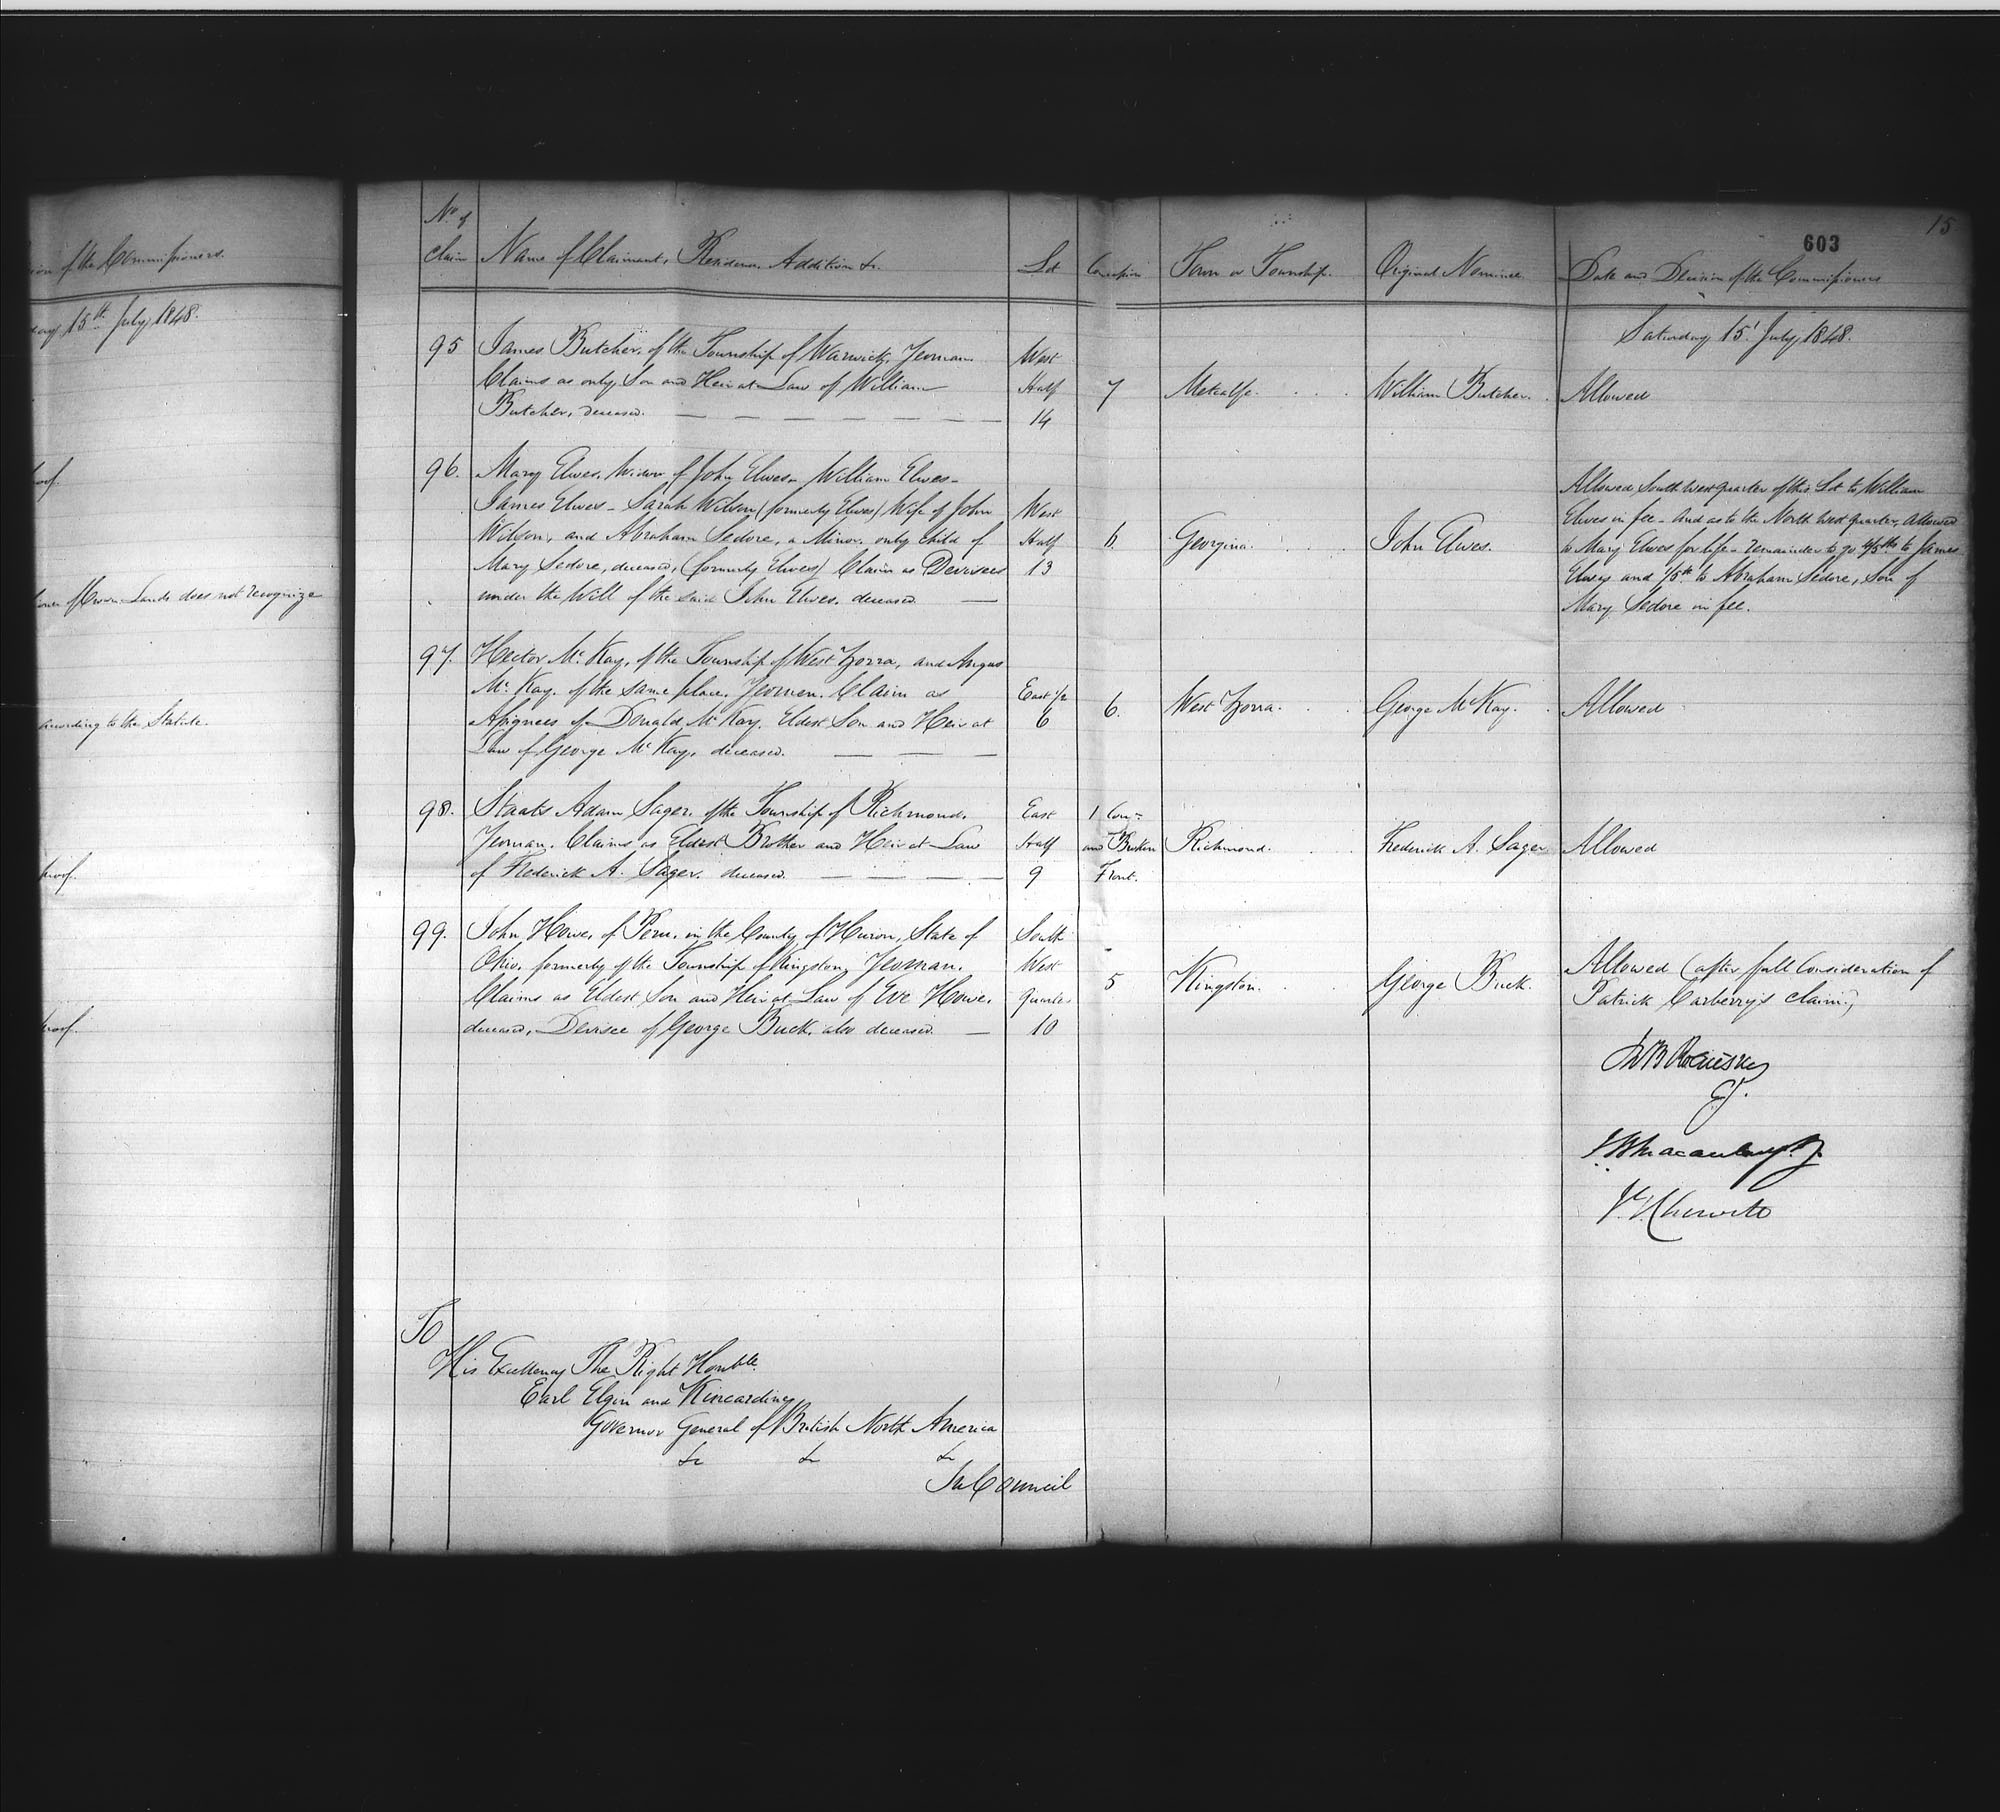 ion of the Commissioners.
15th July, 1848.
oof.
of Crown Lands does not recognize
according to the Statute.
proof.
roof.
15
603
No. of
Claim
Name of Claimant, Residence, Addition &c.
Lot
Concession
Town or Township.
Original Nominee.
Date and Decision of the Commissioners
Saturday 15' July, 1848.
95
James Butcher, of the Township of Warwick, Yeoman.
Claims as only Son and Heir at Law of William
Butcher, deceased.
West
Half
14
7
Metcalfe.
William Butcher.
Allowed
96.
Mary Elwes, Widow of John Elwes - William Elwes -
James Elwes - Sarah Wilson (formerly Elwes) Wife of John
Wilson, and Abraham Sedore, a Minor, only child of
Mary Sedore, deceased, (formerly Elwes) Claim as Devisees
under the Will of the said John Elwes, deceased.
West
Half
13
6.
Georgina.
John Elwes.
Allowed South West quarter of this Lot to William
Elwes in fee - And as to the North West quarter, allowed
to Mary Elwes for life - remainder to go 4/5ths to James
Elwes and 1/5th to Abraham Sedore, Son of
Mary Sedore in fee.
97.
Hector McKay, of the Township of West Zorra, and Angus
McKay, of the same place, Yeomen. Claim as
Assignees of Donald McKay, Eldest Son and Heir at
Law of George McKay, deceased.
East 1/2
6
6.
West Zorra.
George McKay.
Allowed
98.
Staats Adam Sager, of the Township of Richmond,
Yeoman. Claims as Eldest Brother and Heir at Law
of Frederick A. Sager, deceased.
East
Half
9
1 Con.
and Broken
Front.
Richmond.
Frederick A. Sager
Allowed
99.
John Howe, of Peru, in the County of Huron, State of
Ohio, formerly of the Township of Kingston, Yeoman.
Claims as Eldest Son and Heir at Law of Eve Howe,
deceased, Devisee of George Buck, also deceased.
South
West
Quarter
10
5
Kingston.
George Buck.
Allowed (after full Consideration of
Patrick Carberry's claim.)
J B Macaulay J.
To
His Excellency The Right Honble.
Earl Elgin and Kincardine,
Governor General of British North America
&c &c &c
In Council